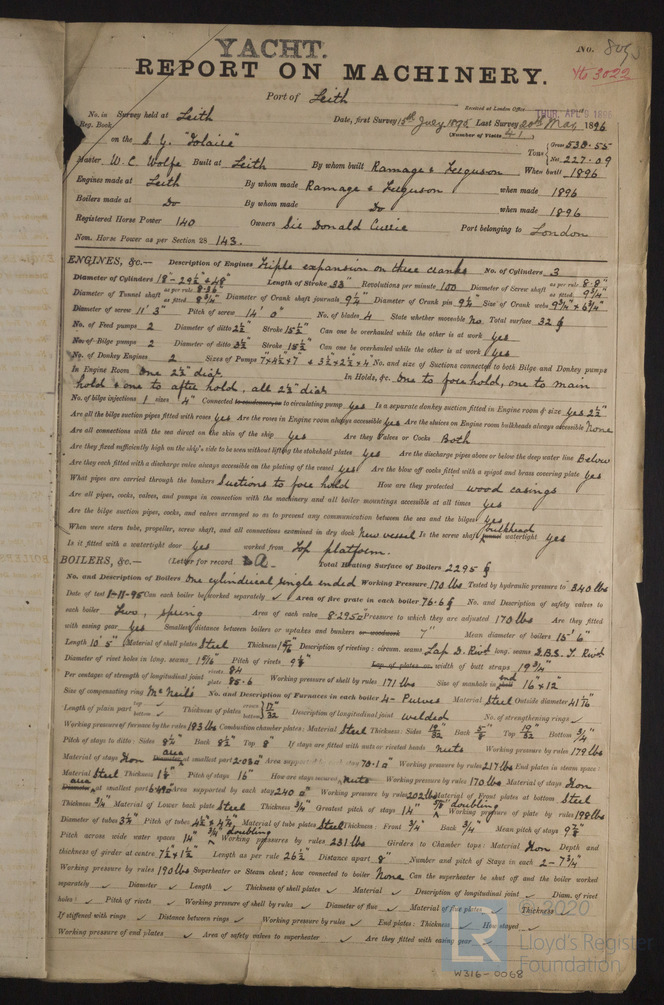 YACHT.
No. 8093
REPORT ON MACHINERY.
Yk 3022
Port of Leith
Received at London Office THUR. APL 9 1896
No. in Survey held at Leith Date, first Survey 15th July 1895 Last Survey 20th Mar 1896
Reg. Book. (Number of Visits 41)
on the S. Y. "Iolaire" Tons Gross 533.55 Net 227.09
Master W. C. Wolfe Built at Leith By whom built Ramage & Ferguson When built 1896
Engines made at Leith By whom made Ramage & Ferguson when made 1896
Boilers made at Do By whom made Do when made 1896
Registered Horse Power 140 Owners Sir Donald Currie Port belonging to London
Nom. Horse Power as per Section 28 143.
ENGINES, &c.— Description of Engines Triple expansion on three cranks No. of Cylinders 3
Diameter of Cylinders 18"-29½" & 48" Length of Stroke 33" Revolutions per minute 100 Diameter of Screw shaft as per rule 8.8" as fitted 9¾"
Diameter of Tunnel shaft as per rule 8.36" as fitted 8¾" Diameter of Crank shaft journals 9¼" Diameter of Crank pin 9¼" Size of Crank webs 9¾" & 6¾"
Diameter of screw 11' 3" Pitch of screw 14' 0" No. of blades 4 State whether moveable No Total surface 32
No. of Feed pumps 2 Diameter of ditto 2½" Stroke 15½" Can one be overhauled while the other is at work yes
No. of Bilge pumps 2 Diameter of ditto 3½" Stroke 15½" Can one be overhauled while the other is at work yes
No. of Donkey Engines 2 Sizes of Pumps 7"x4½"x7" & 3½"x2½"x4" No. and size of Suctions connected to both Bilge and Donkey pumps
In Engine Room One 2½" diar In Holds, &c. One to fore hold, one to main
hold & one to after hold, all 2½" diar
No. of bilge injections 1 sizes 4" Connected to condenser, or to circulating pump yes Is a separate donkey suction fitted in Engine room & size yes 2½"
Are all the bilge suction pipes fitted with roses yes Are the roses in Engine room always accessible yes Are the sluices on Engine room bulkheads always accessible None
Are all connections with the sea direct on the skin of the ship yes Are they Valves or Cocks Both
Are they fixed sufficiently high on the ship's side to be seen without lifting the stokehold plates yes Are the discharge pipes above or below the deep water line Below
Are they each fitted with a discharge valve always accessible on the plating of the vessel yes Are the blow off cocks fitted with a spigot and brass covering plate yes
What pipes are carried through the bunkers Suctions to fore hold How are they protected wood casings
Are all pipes, cocks, valves, and pumps in connection with the machinery and all boiler mountings accessible at all times yes
Are the bilge suction pipes, cocks, and valves arranged so as to prevent any communication between the sea and the bilges yes
When were stern tube, propeller, screw shaft, and all connections examined in dry dock New vessel Is the screw shaft tunnel bulkhead watertight yes
Is it fitted with a watertight door yes worked from Top platform.
BOILERS, &c.— (Letter for record A Total Heating Surface of Boilers 2295
No. and Description of Boilers One cylindrical single ended Working Pressure 170 lbs Tested by hydraulic pressure to 340 lbs
Date of test 8-11-95 Can each boiler be worked separately ✓ Area of fire grate in each boiler 76.6 No. and Description of safety valves to
each boiler Two, spring Area of each valve 8.295 Pressure to which they are adjusted 170 lbs Are they fitted
with easing gear yes Smallest distance between boilers or uptakes and bunkers or woodwork 7" Mean diameter of boilers 15' 6"
Length 10' 5" Material of shell plates Steel Thickness Description of riveting: circum. seams Lap D. Rivd long. seams D.B.S. T. Rivd
Diameter of rivet holes in long. seams 1 9/16" Pitch of rivets Lap of plates or width of butt straps 19¾"
Per centages of strength of longitudinal joint rivets 84 plate 85.6 Working pressure of shell by rules 171 lbs Size of manhole in end 16" x 12"
Size of compensating ring McNeil's No. and Description of Furnaces in each boiler 4 - Purves Material Steel Outside diameter 41 7/16"
Length of plain part top ✓ bottom ✓ Thickness of plates crown bottom 17/32" Description of longitudinal joint welded No. of strengthening rings ✓
Working pressure of furnace by the rules 183 lbs Combustion chamber plates: Material Steel Thickness: Sides 19/32" Back 5/8" Top 19/32" Bottom ¾"
Pitch of stays to ditto: Sides 8¼" Back 8½" Top 8" If stays are fitted with nuts or riveted heads nuts Working pressure by rules 179 lbs
Material of stays Iron Diameter area at smallest part 2.03 Area supported by each stay 70.1 Working pressure by rules 217 lbs End plates in steam space:
Material Steel Thickness 1⅛" Pitch of stays 16" How are stays secured nuts Working pressure by rules 170 lbs Material of stays Iron
Diameter area at smallest part Area supported by each stay 240 Working pressure by rules 202 lbs Material of Front plates at bottom Steel
Thickness ¾" Material of Lower back plate Steel Thickness ¾" Greatest pitch of stays 14" doubling Working pressure of plate by rules 198 lbs
Diameter of tubes 3¼" Pitch of tubes 4½" & 4¼" Material of tube plates Steel Thickness: Front ¾" Back ¾" Mean pitch of stays
Pitch across wide water spaces 14" ¾" doubling Working pressures by rules 231 lbs Girders to Chamber tops: Material Iron Depth and
thickness of girder at centre 7½" x 1½" Length as per rule 26½" Distance apart 8" Number and pitch of Stays in each 2 - 7¾"
Working pressure by rules 190 lbs Superheater or Steam chest; how connected to boiler None Can the superheater be shut off and the boiler worked
separately ✓ Diameter ✓ Length ✓ Thickness of shell plates ✓ Material ✓ Description of longitudinal joint ✓ Diam. of rivet
holes ✓ Pitch of rivets ✓ Working pressure of shell by rules ✓ Diameter of flue ✓ Material of flue plates ✓ Thickness ✓
If stiffened with rings ✓ Distance between rings ✓ Working pressure by rules ✓ End plates: Thickness ✓ How stayed ✓
Working pressure of end plates ✓ Area of safety valves to superheater ✓ Are they fitted with easing gear ✓
LR © 2020
Lloyd's Register
Foundation
W316-0068